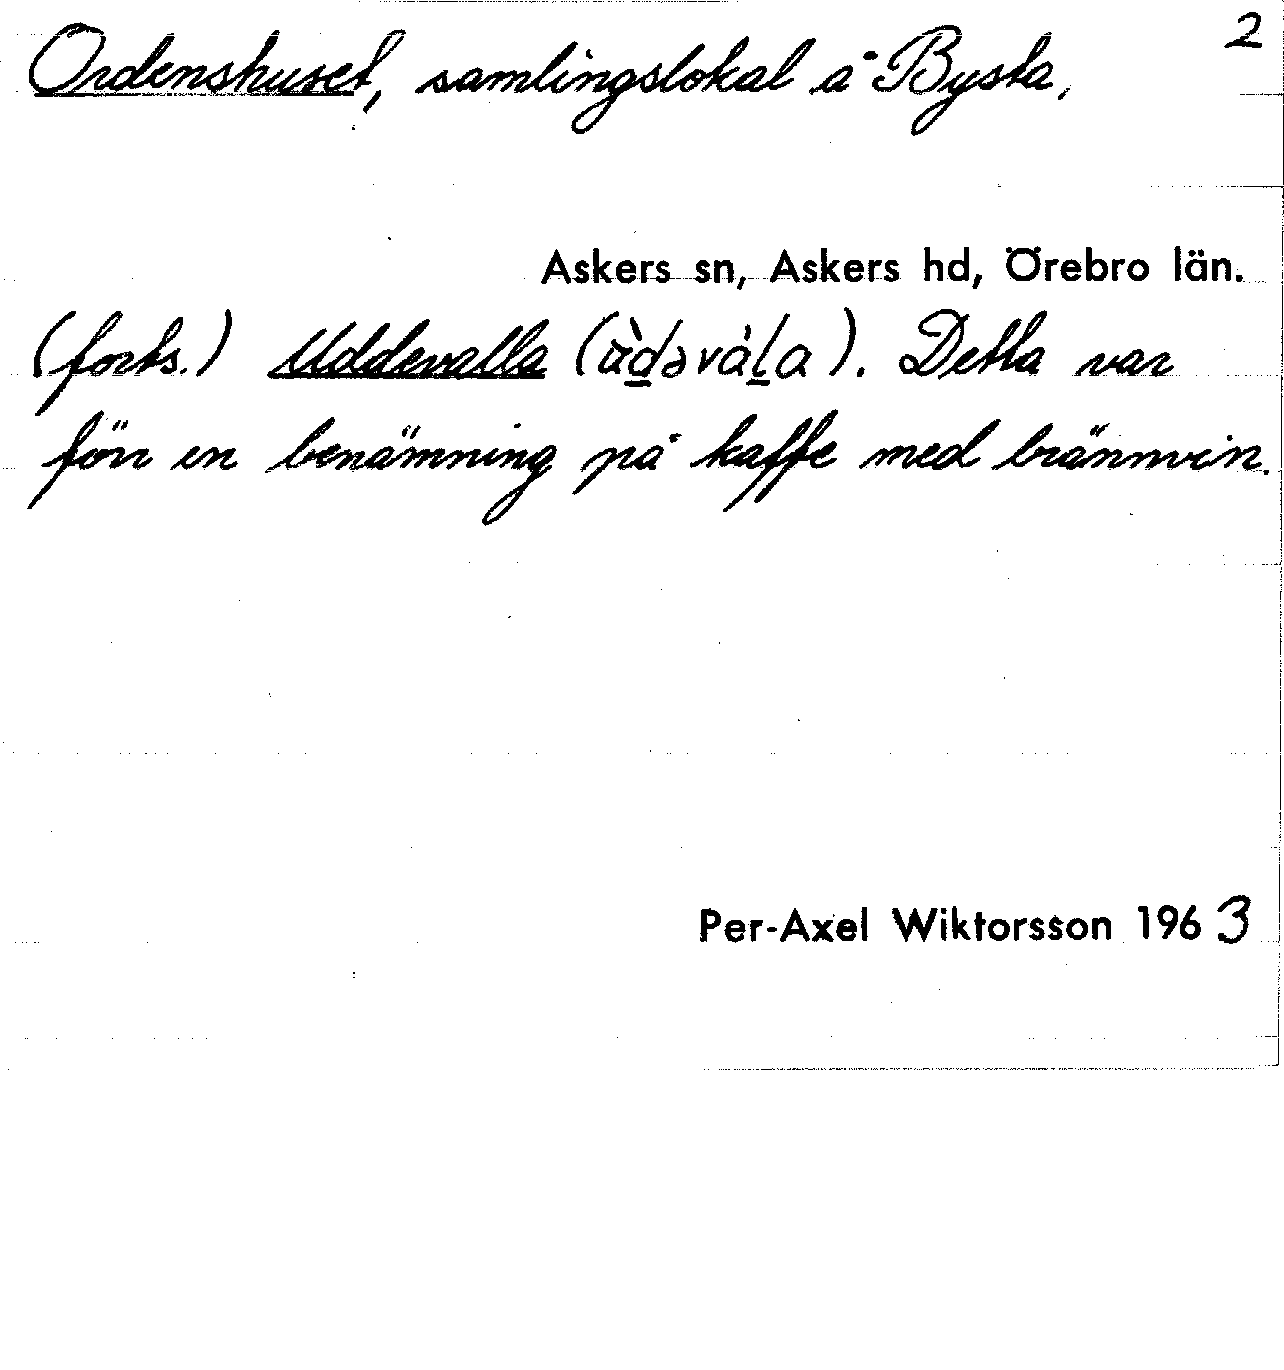 2
Ordenshuset, samlingslokal å Bysta,
Askers sn, Askers hd, Örebro län.
(forts.) Uddevalla (ùd̲əvàl̲a). Detta var
förr en benämning på kaffe med brännvin.
Per-Axel Wiktorsson 1963